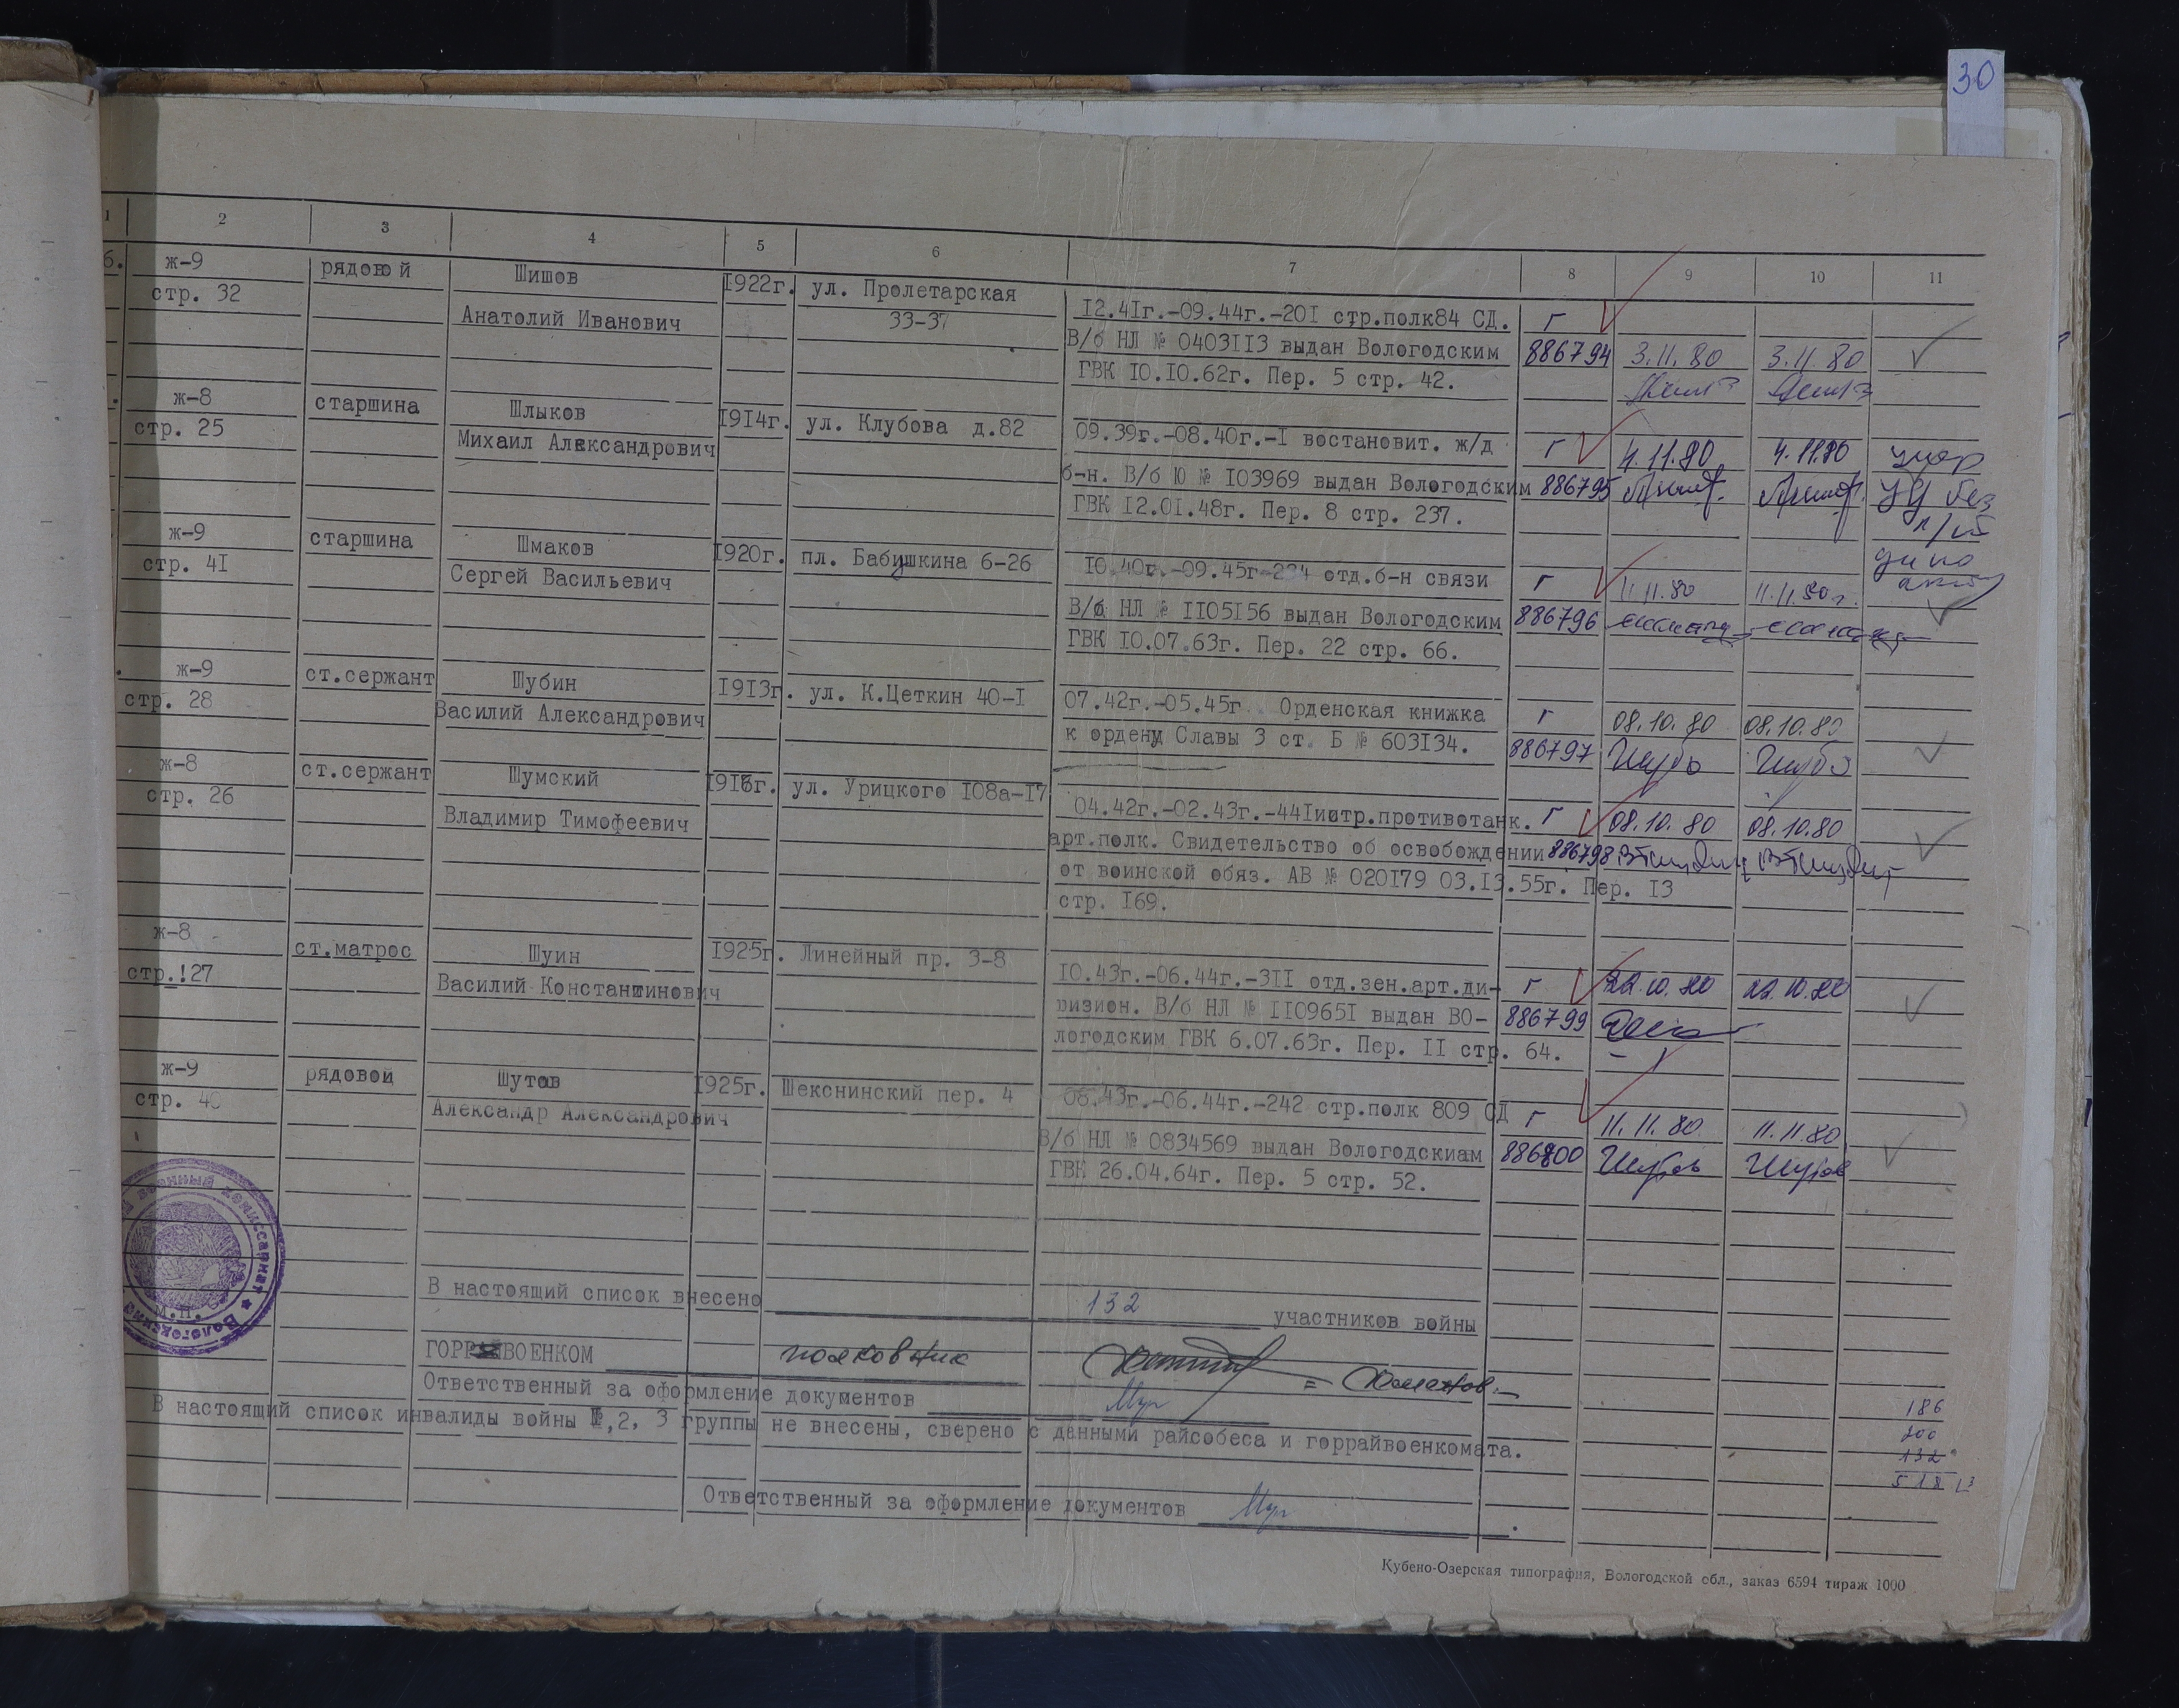 30
1 2 3 4 5 6 7 8 9 10 11
б. ж-9 рядовой Шишов 1922г. ул. Пролетарская
стр. 32 Анатолий Иванович 33-37
12.41г.-09.44г.-201 стр.полк84 СД. г
В/б НЛ № 0403113 выдан Вологодским 886794 3.11.80 3.11.80
ГВК 10.10.62г. Пер. 5 стр. 42.
ж-8 старшина Шлыков 1914г. ул. Клубова д.82
стр. 25 Михаил Александрович
09.39г.-08.40г.-1 востановит. ж/д г 4.11.80 4.11.80
б-н. В/б Ю № 103969 выдан Вологодским 886795
ГВК 12.01.48г. Пер. 8 стр. 237.
ж-9 старшина Шмаков 1920г. пл. Бабушкина 6-26
стр. 41 Сергей Васильевич
10.40г.-09.45г-224 отд.б-н связи г 11.11.80 11.11.80г.
В/б НЛ № 1105156 выдан Вологодским 886796
ГВК 10.07.63г. Пер. 22 стр. 66.
ж-9 ст.сержант Шубин 1913г. ул. К.Цеткин 40-1
стр. 28 Василий Александрович
07.42г.-05.45г. Орденская книжка г 08.10.80 08.10.80
к ордену Славы 3 ст. Б № 603134. 886797
ж-8 ст.сержант Шумский ул. Урицкого 108а-17
стр. 26 Владимир Тимофеевич
04.42г.-02.43г.-441истр.противотанк. г 08.10.80 08.10.80
арт.полк. Свидетельство об освобождении 886798
от воинской обяз. АВ № 020179 03.13.55г. Пер. 13
стр. 169.
ж-8 ст.матрос Шуин 1925г. Линейный пр. 3-8
стр.!27 Василий Константинович
10.43г.-06.44г.-311 отд.зен.арт.ди- г 22.10.80 22.10.80
визион. В/б НЛ № 1109651 выдан ВО- 886799
логодским ГВК 6.07.63г. Пер. 11 стр. 64.
ж-9 рядовой Шутов 1925г. Шекснинский пер. 4
стр. 40 Александр Александрович
08.43г.-06.44г.-242 стр.полк 809 СД г 11.11.80 11.11.80
В/б НЛ № 0834569 выдан Вологодскиам 886800 Шутов Шутов
ГВК 26.04.64г. Пер. 5 стр. 52.
военный комиссариат ★ Вологодский
М.П.
В настоящий список внесено 132 участников войны
ГОРРАЙВОЕНКОМ полковник
Ответственный за оформление документов
В настоящий список инвалиды войны 1,2, 3 группы не внесены, сверено с данными райсобеса и горрайвоенкомата.
Ответственный за оформление документов
186
200
132
518
Кубено-Озерская типография, Вологодской обл., заказ 6594 тираж 1000